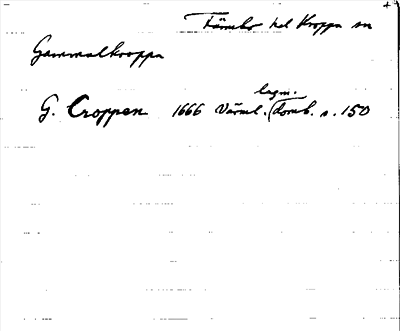 Färnebo hd Kroppa sn
Gammalkroppa
G. Croppen 1666 Värml. lagm. domb. s. 150